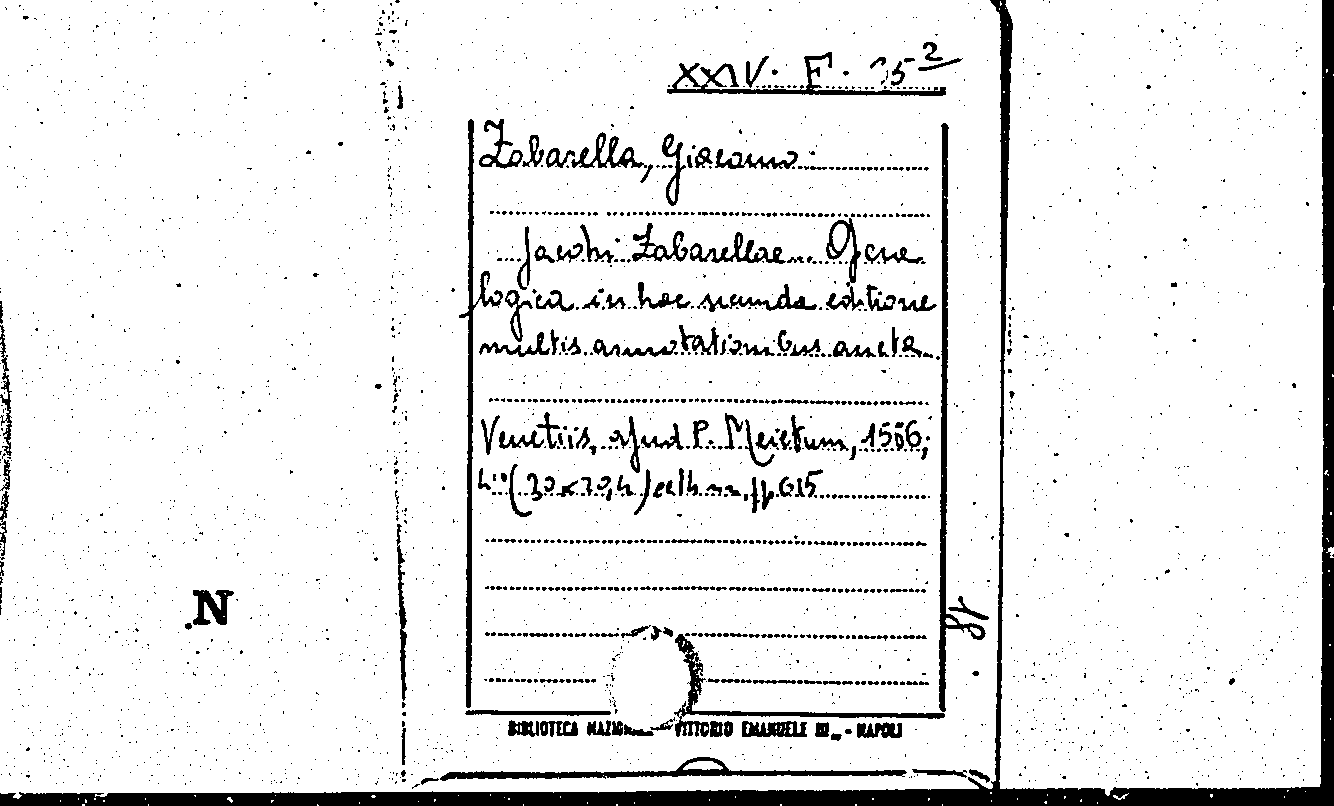 XXIV. F. 35²
Zabarella, Giacomo.
Jacobi Zabarellae... Opera
logica in hac secunda editione
multis annotationibus aucta.
Venetiis, apud P. Meietum, 1586;
4° (30 x 20,4) cc 14 nn., pp. 615
N
BIBLIOTECA VITTORIO EMANUELE III - NAPOLI